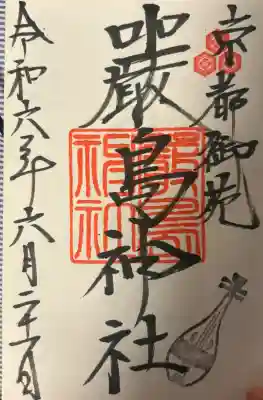 京都御苑
嚴島神社
令和六年六月二十一日
嚴島
神社